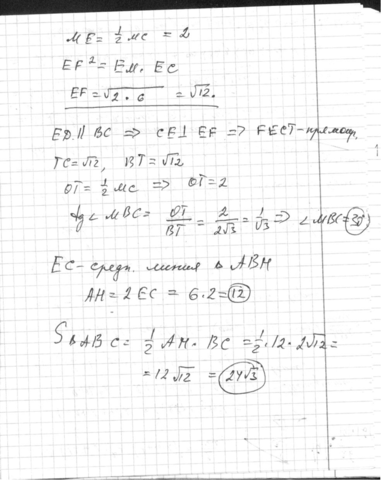 ME = 1/2 MC = 2
EF² = EM · EC
EF = √2 · 6 = √12.
ED || BC => CE ⊥ EF => FECT - прямоуг.
TC = √12, BT = √12
OT = 1/2 MC => OT = 2
tg ∠ MBC = OT/BT = 2/2√3 = 1/√3 => ∠ MBC = 30°
EC - средн. линия △ ABH
AH = 2 EC = 6 · 2 = 12
S△ABC = 1/2 AH · BC = 1/2 · 12 · 2√12 =
= 12√12 = 24√3